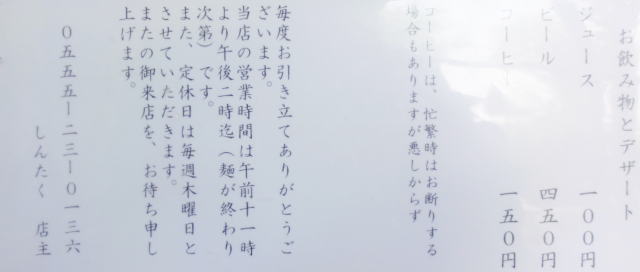 お飲み物とデザート
ジュース 一〇〇円
ビール 四五〇円
コーヒー 一五〇円
コーヒーは、忙繁時はお断りする
場合もありますが悪しからず
毎度お引き立てありがとうご
ざいます。
当店の営業時間は午前十一時
より午後二時迄（麺が終わり
次第）です。
また、定休日は毎週木曜日と
させていただきます。
またの御来店を、お待ち申し
上げます。
０５５５ー２３ー０１３６
しんたく 店主